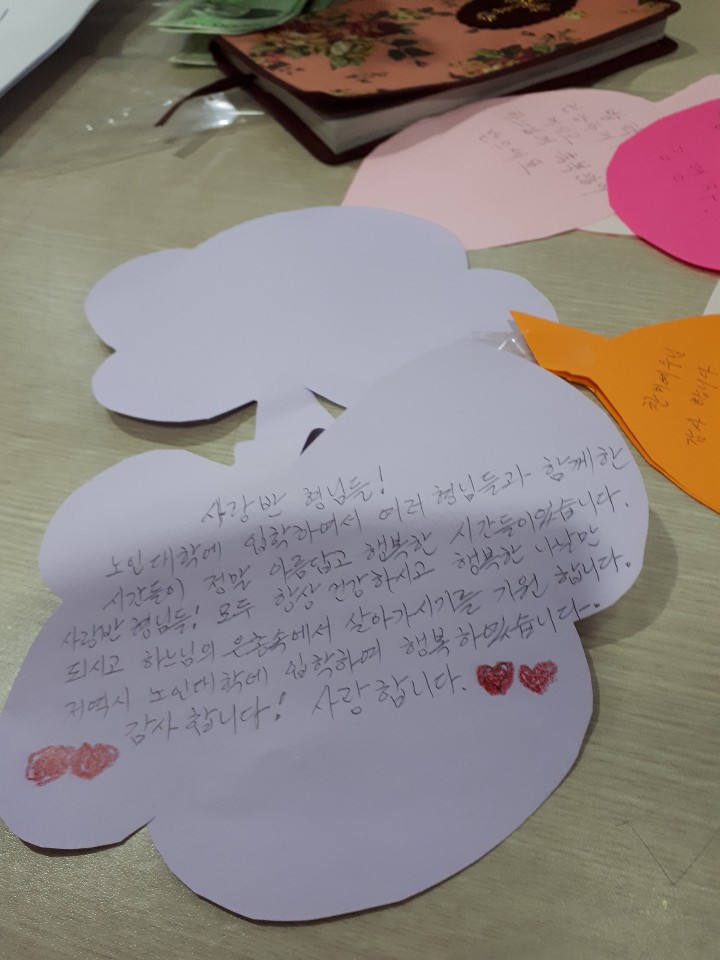 사랑반 형님들!
노인대학에 입학하여서 여러 형님들과 함께한
시간들이 정말 아름답고 행복한 시간들이었습니다.
사랑반 형님들! 모두 항상 건강하시고 행복한 나날만
되시고 하느님의 은총속에서 살아가시기를 기원 합니다.
저역시 노인대학에 입학하여 행복하였습니다.
감사합니다! 사랑합니다.
찬미예수님
감사합니다